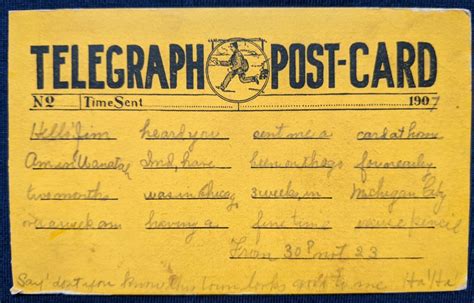 TELEGRAPH POST-CARD
No Time Sent 1907
Hello Jim heard you sent me a card at home
Am in Ind, have been on the go for nearly
two months was in Chicago 3 weeks, in Michigan City
over a week am having a fine time
From 30 ? not 23
Say! don't you know this town looks good to me Ha! Ha!